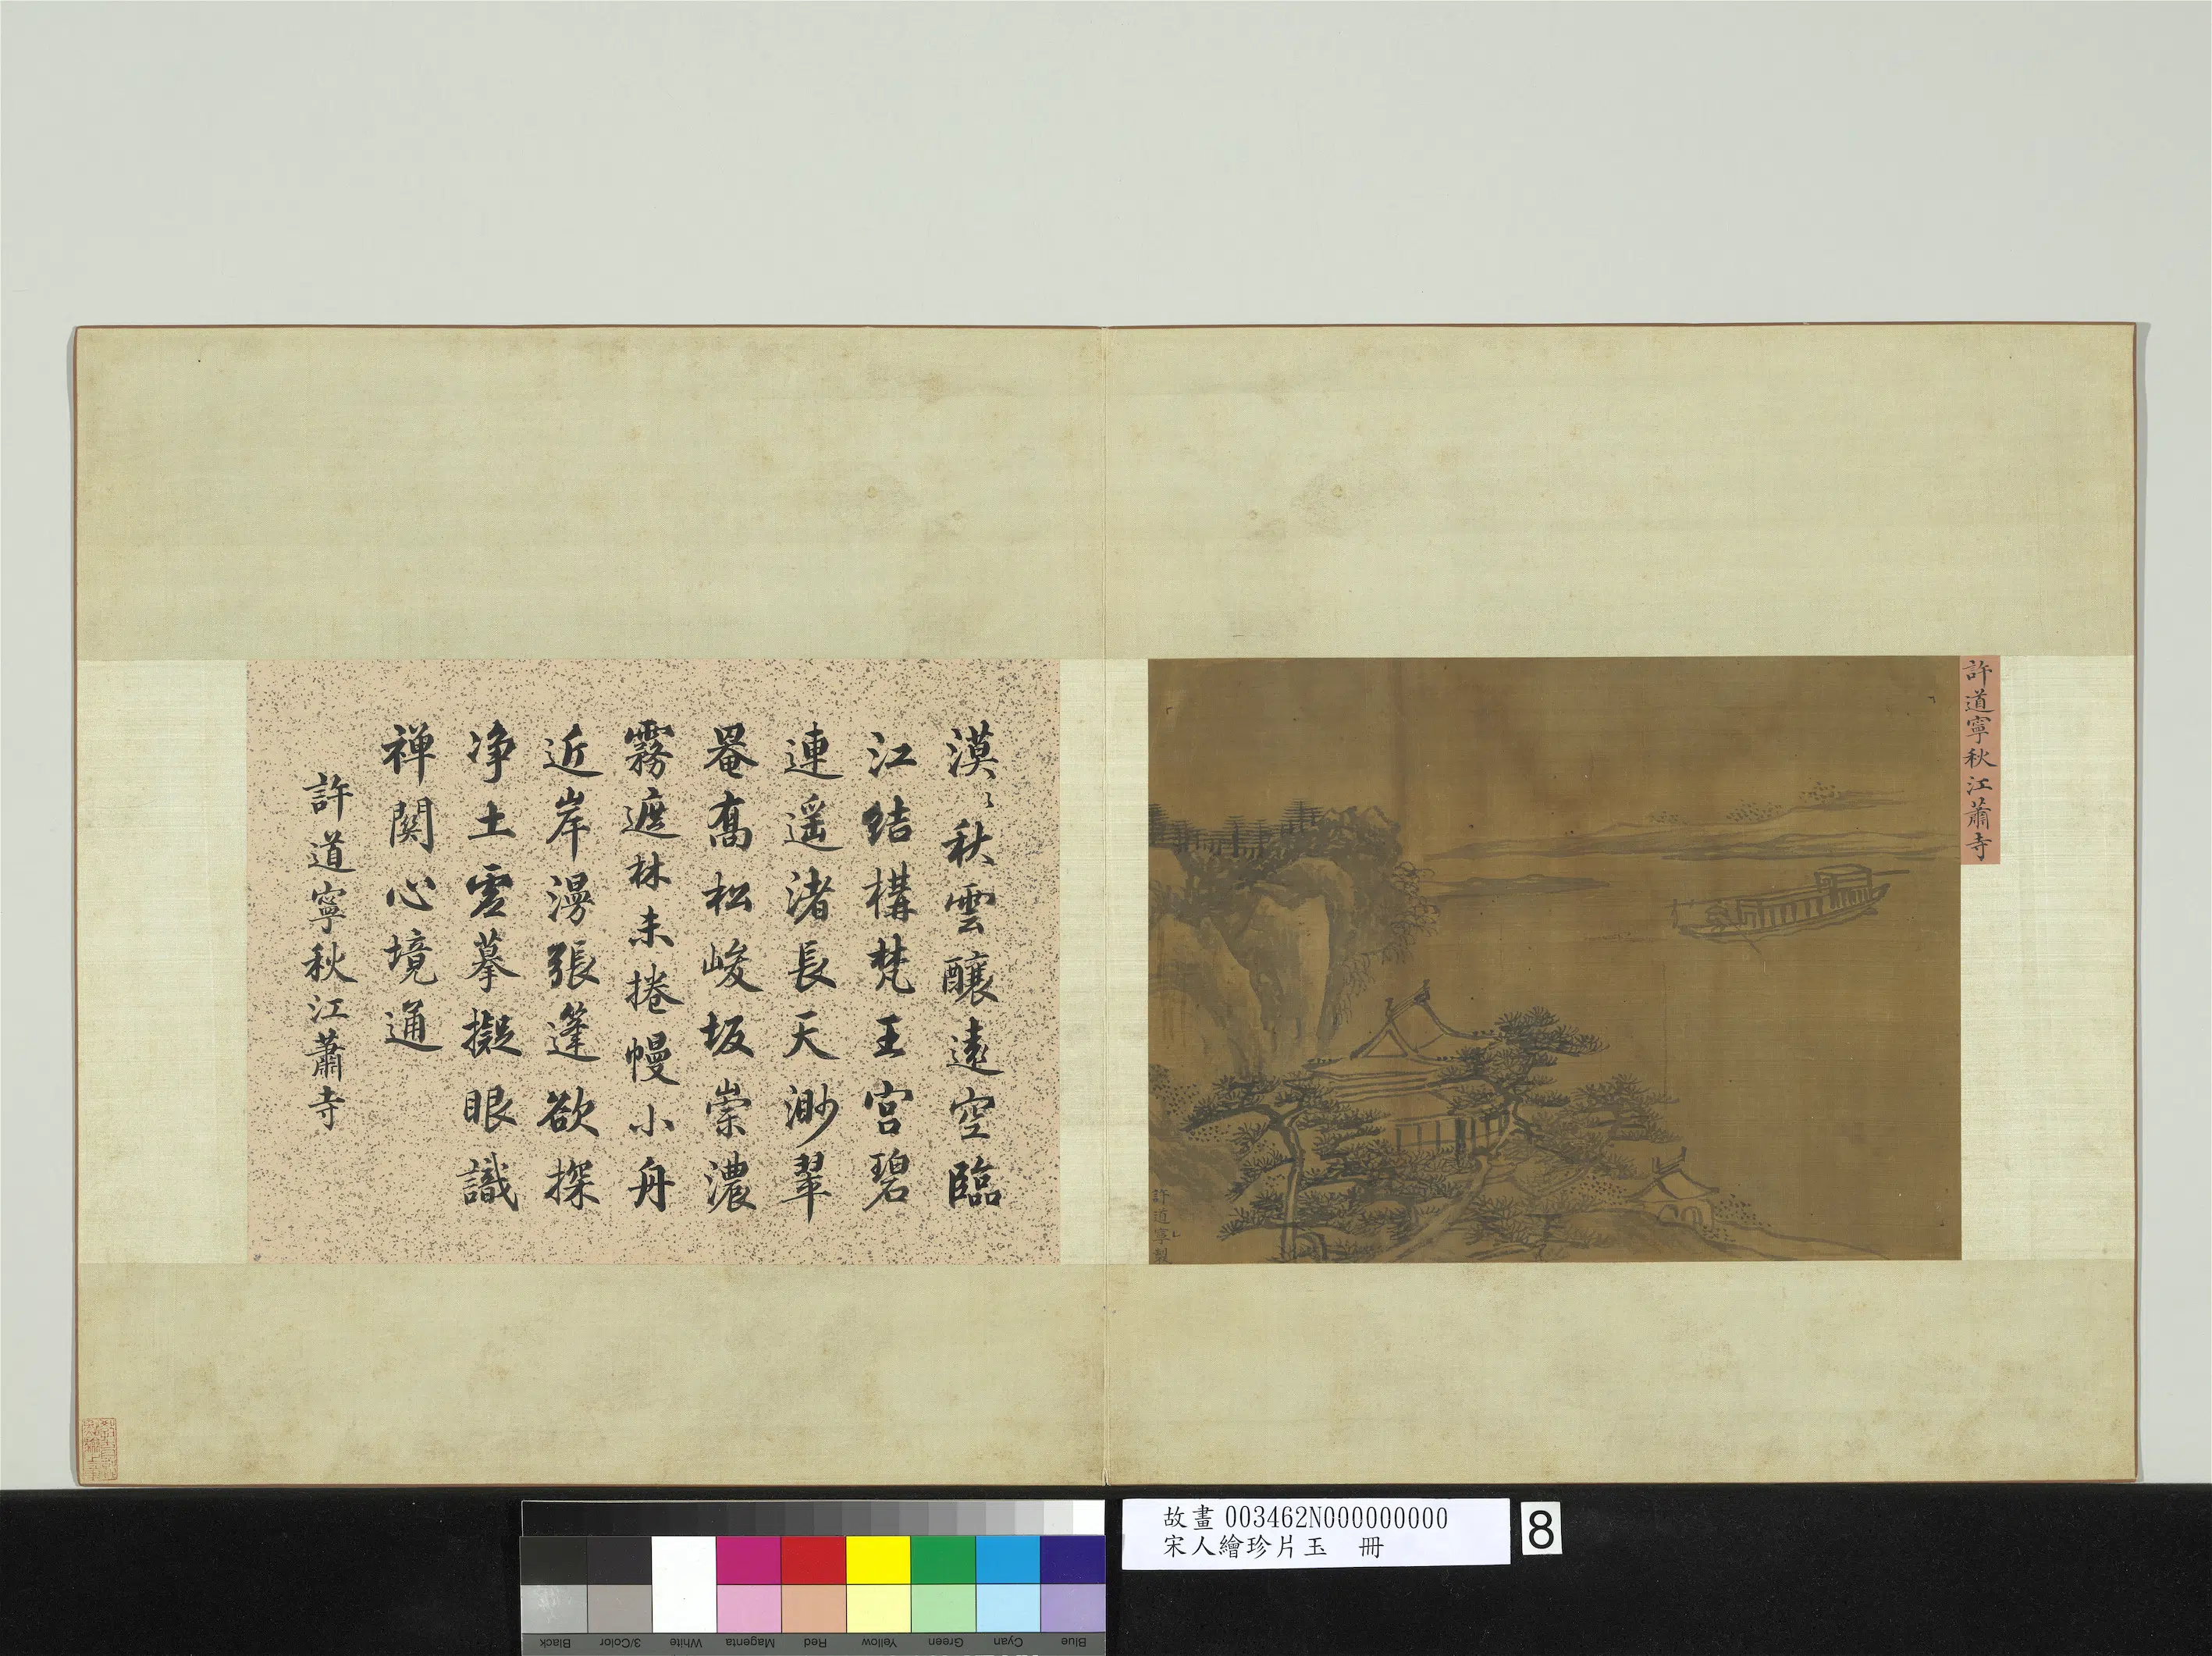 許道寧秋江蕭寺
許道寧製
漠〻秋雲釀遠空臨
江結構梵王宮碧
連遥渚長天渺翠
罨高松峻坂崇濃
霧遮林未捲幔小舟
近岸漫張篷欲探
净土雲摹擬眼識
禅関心境通
許道寧秋江蕭寺
故畫 003462N000000000
宋人繪珍片玉 冊
8
Black
3/Color
White
Magenta
Red
Yellow
Green
Cyan
Blue